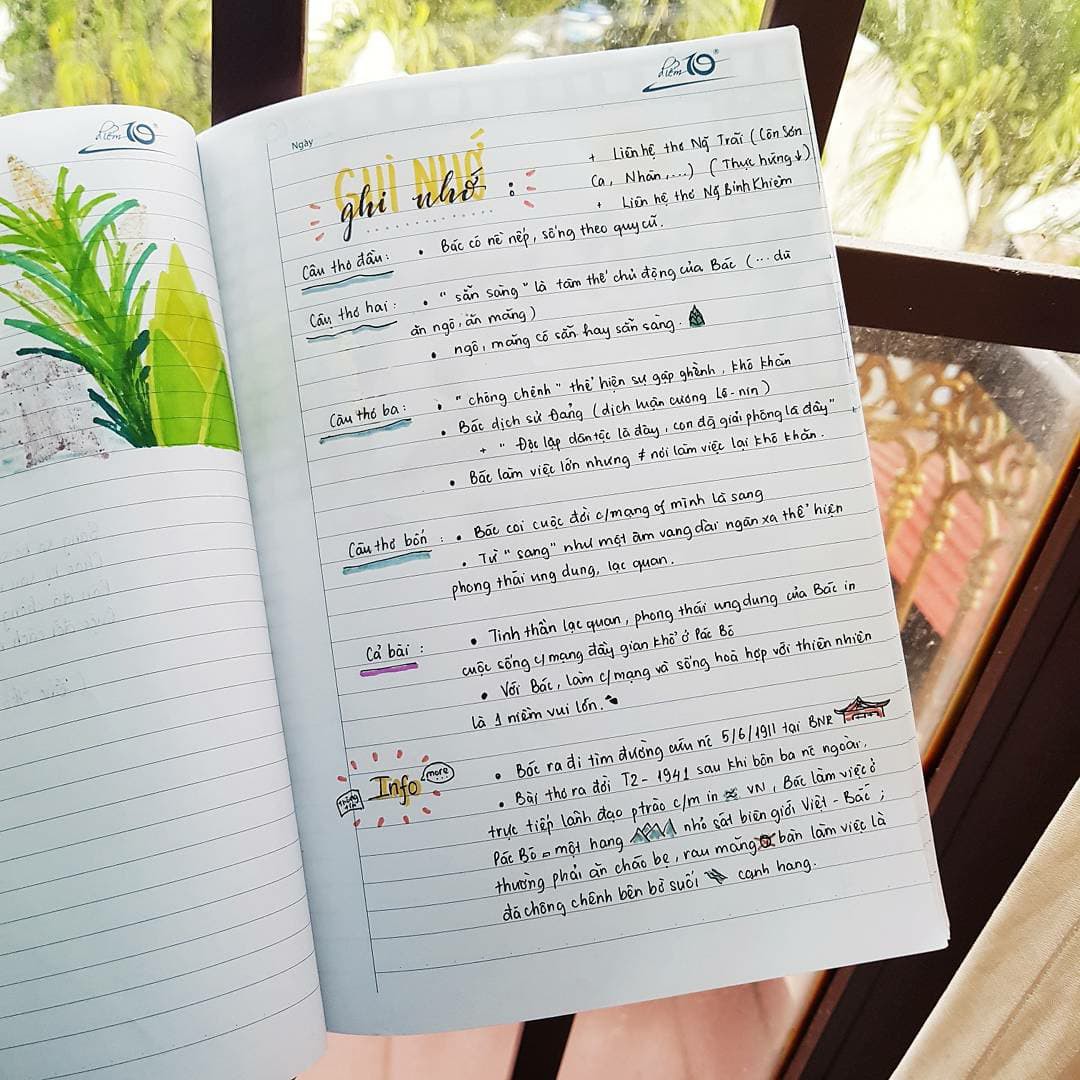 điểm 10
điểm 10
Ngày
GHI NHỚ
ghi nhớ :
+ Liên hệ thơ Ng̃ Trãi (Côn Sơn
Ca, Nhàn,...) (Thực hứng↓)
+ Liên hệ thơ Ng̃ Bỉnh Khiêm
Câu thơ đầu: • Bác có nề nếp, sống theo quy cũ.
Câu thơ hai: • "sẵn sàng" là tâm thế chủ động của Bác (... dù
ăn ngô, ăn măng)
• ngô, măng có sẵn hay sẵn sàng.
Câu thơ ba: • "chông chênh" thể hiện sự gập ghềnh, khó khăn
• Bác dịch sử Đảng (dịch luận cương Lê-nin)
+ "Độc lập dân tộc là đây, con đg̃ giải phóng là đây"
• Bác làm việc lớn nhưng ≠ nơi làm việc lại khó khăn.
Câu thơ bốn: • Bác coi cuộc đời c/mạng of mình là sang
• Từ "sang" như một âm vang dài ngân xa thể hiện
phong thái ung dung, lạc quan.
Cả bài: • Tinh thần lạc quan, phong thái ung dung của Bác in
cuộc sống c/mạng đầy gian khổ ở Pác Bó
• Với Bác, làm c/mạng và sống hoà hợp với thiên nhiên
là 1 niềm vui lớn.
thông tin
Info
more
• Bác ra đi tìm đường cứu nc 5/6/1911 tại BNR
• Bài thơ ra đời T2-1941 sau khi bôn ba nc ngoài,
trực tiếp lãnh đạo ptrào c/m in VN, Bác làm việc ở
Pác Bó = một hang nhỏ sát biên giới Việt-Bắc;
thường phải ăn cháo bẹ, rau măng bàn làm việc là
đá chông chênh bên bờ suối cạnh hang.